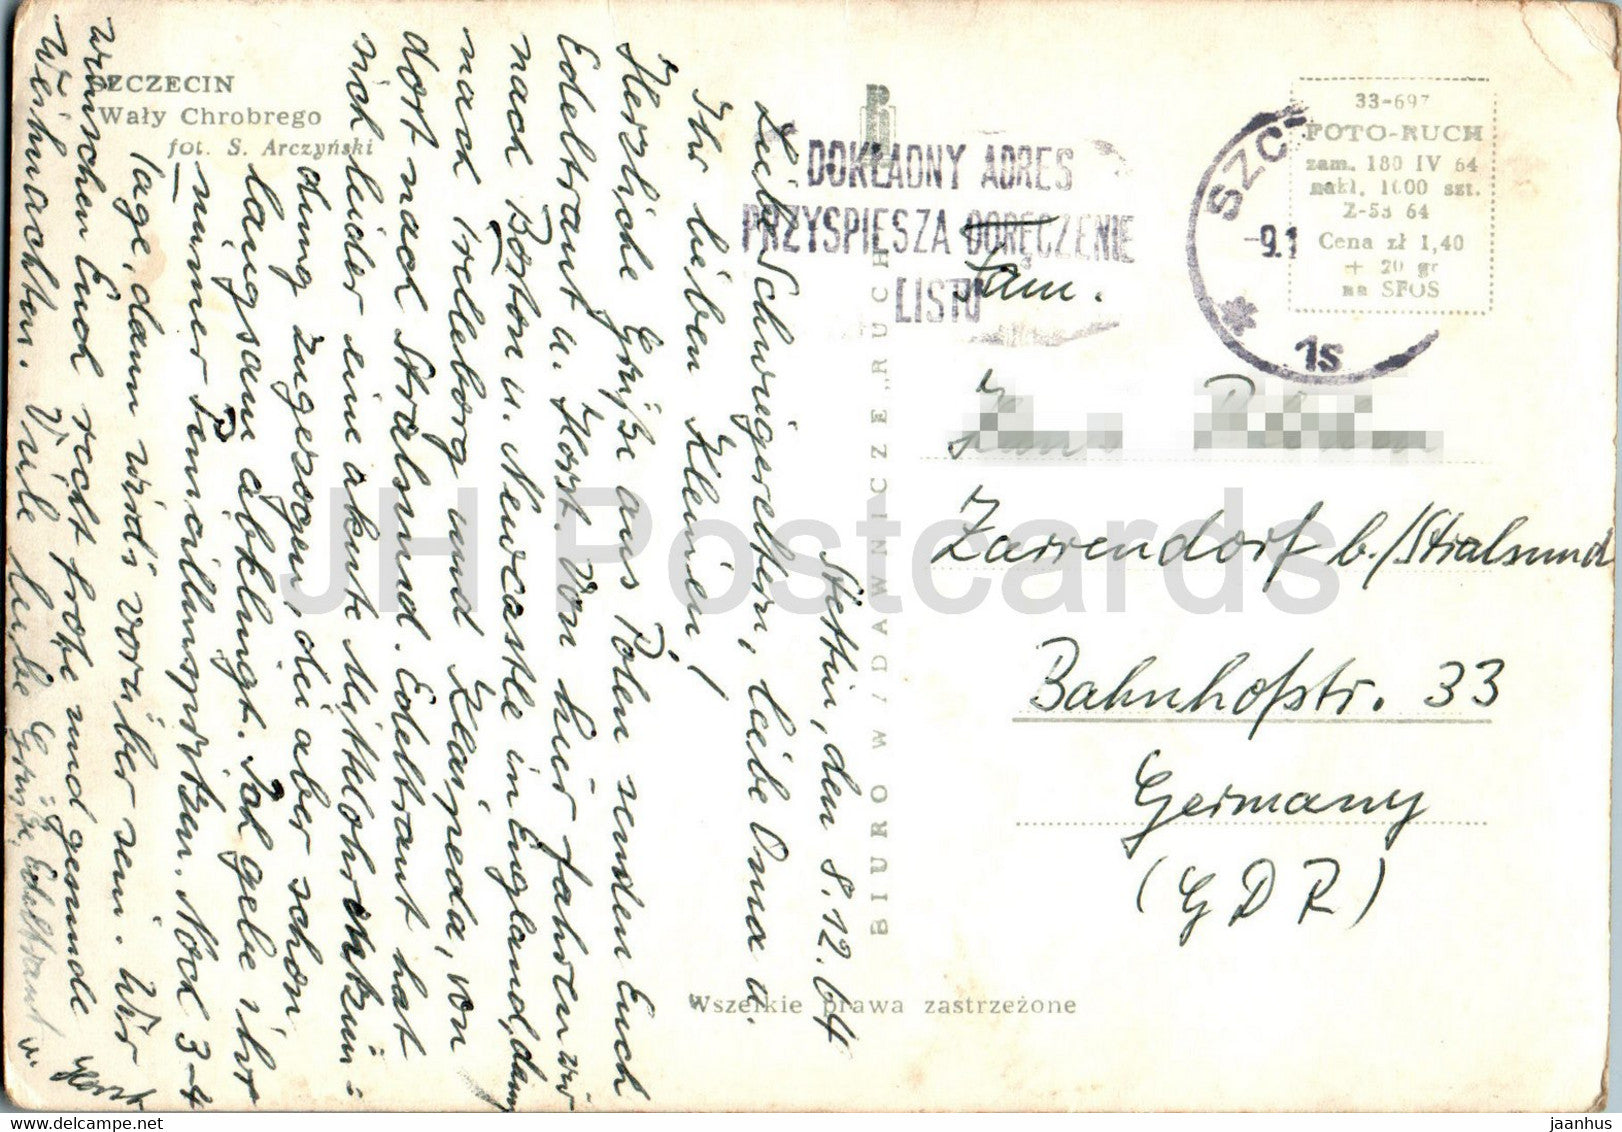 SZCZECIN
Wały Chrobrego
fot. S. Arczyński
Stettin, den 8.12.64
Liebe Schwiegereltern, liebe Oma u.
Ihr lieben Kleinen!
Herzliche Grüße aus Polen senden Euch
Edeltraut u. Horst. Von hier fahren wir
nach Boston u. Newcastle in England, dann
nach Trelleborg und Klaipeda, von
dort nach Stralsund. Edeltraut hat
sich leider eine akute Mittelohrentzün=
dung zugezogen, die aber schon
langsam abklingt. Ich gebe ihr
immer Penicillinspritzen. Noch 3-4
Tage, dann wird's vorüber sein. Wir
wünschen Euch recht frohe und gesunde
Weihnachten. Viele liebe Grüße, Edeltraut u.
Horst
BIURO WYDAWNICZE „RUCH”
DOKŁADNY ADRES
PRZYSPIESZA DORĘCZENIE
LISTU
SZCZ
-9.1
1s
33-697
FOTO-RUCH
zam. 180 IV 64
nakł. 1000 szt.
Z-53 64
Cena zł 1,40
+ 20 gr
na SFOS
Fam.
Zarrendorf b./Stralsund
Bahnhofstr. 33
Germany
(GDR)
Wszelkie prawa zastrzeżone
JH Postcards
www.delcampe.net
jaanhus